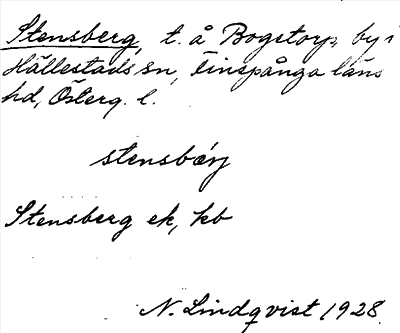 Stensberg, t. å Bogetorp, by i
Hällestads sn, Finspånga läns
hd, Österg. l.
stensbærj
Stensberg ek, kb
N. Lindqvist 1928.